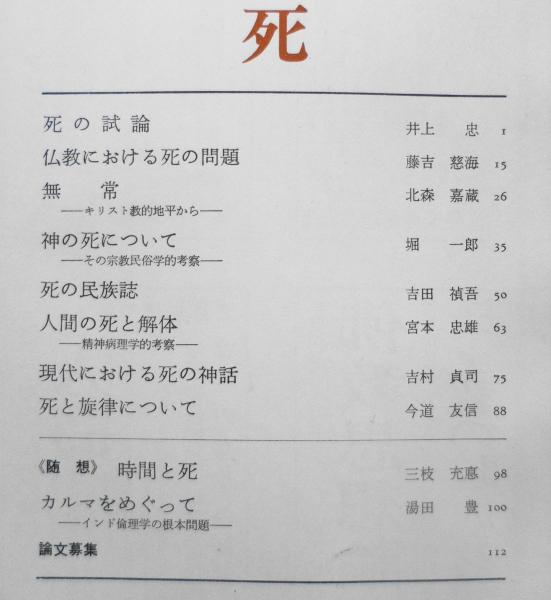 死
死の試論 井上 忠 1
仏教における死の問題 藤吉 慈海 15
無 常 北森 嘉蔵 26
――キリスト教的地平から――
神の死について 堀 一郎 35
――その宗教民俗学的考察――
死の民族誌 吉田 禎吾 50
人間の死と解体 宮本 忠雄 63
――精神病理学的考察――
現代における死の神話 吉村 貞司 75
死と旋律について 今道 友信 88
《随 想》 時間と死 三枝 充悳 98
カルマをめぐって 湯田 豊 100
――インド倫理学の根本問題――
論文募集 112